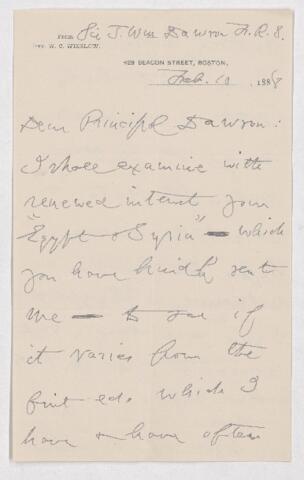 FROM Sir J. Wm Dawson F.R.S.
REV. W. C. WINSLOW,
429 BEACON STREET, BOSTON.
Feb. 10, 1888
Dear Principal Dawson:
I shall examine with
renewed interest your
"Egypt & Syria" – which
you have kindly sent
me – to see if
it varies from the
first ed. which I
have & have often